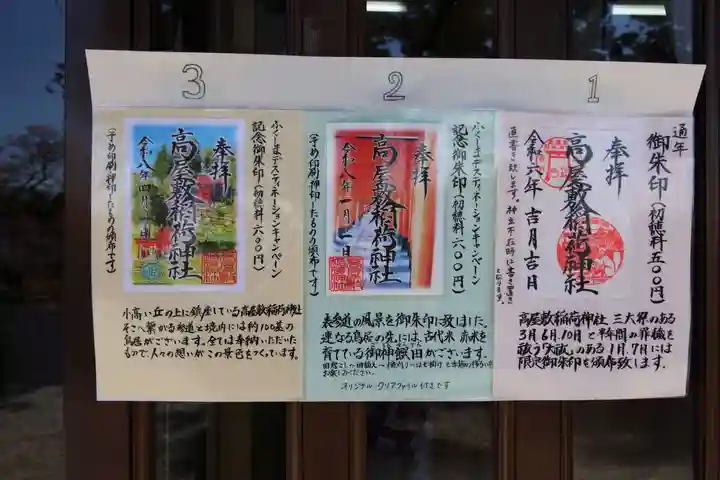 1
通年
御朱印(初穂料五〇〇円)
奉拝
高屋敷稲荷神社
令和六年 吉月吉日
直書き致します。神主不在時は書き置き
高屋敷稲荷神社 三大祭のある
3月6月10月と半年間の罪穢を
祓う大祓のある1月、7月には
限定御朱印を頒布致します。
2
ふくしまデスティネーションキャンペーン
記念御朱印(初穂料六〇〇円)
奉拝
高屋敷稲荷神社
令和八年一月一日
(予め印刷・押印したものの頒布です)
表参道の風景を御朱印に致しました。
連なる鳥居の先には、古代米 赤米を
育てている御神饌田がございます。
お試しください。
オリジナルクリアファイル付きです
3
ふくしまデスティネーションキャンペーン
記念御朱印(初穂料六〇〇円)
奉拝
高屋敷稲荷神社
令和八年四月一日
(予め印刷・押印したものの頒布です)
小高い丘の上に鎮座している高屋敷稲荷神社
そこへ繋がる参道と境内には約100基の
鳥居がございます。全ては奉納いただいた
もので、人々の想いがこの景色をつくっています。